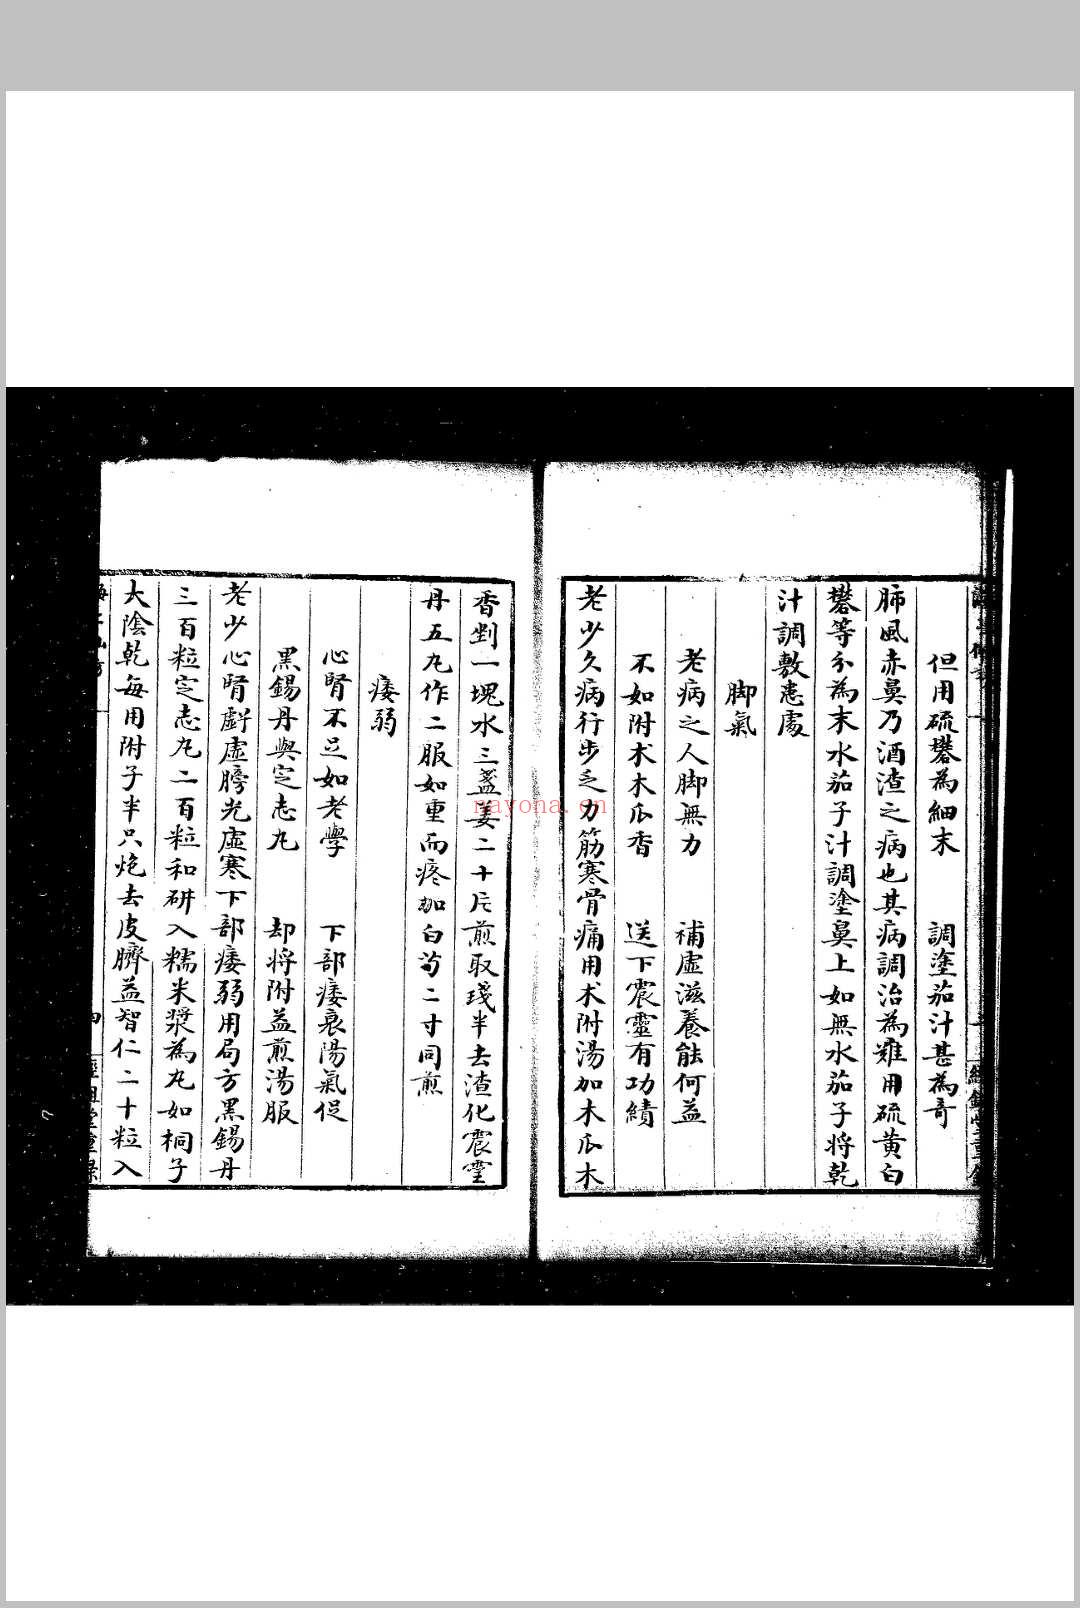 但用硫礬為細末　調塗茄汁甚為奇
肺風赤鼻乃酒渣之病也其病調治為難用硫黄白
礬等分為末水茄子汁調塗鼻上如無水茄子将乾
汁調敷患處
脚氣
老病之人脚無力　補虛滋養能何益
不如附术木瓜香　送下震靈有功績
老少久病行步乏力筋寒骨痛用术附湯加木瓜木
香剉一塊水三盞姜二十片煎取琖半去渣化震靈
丹五丸作二服如重而疼加白芍二寸同煎
痿弱
心腎不足如老學　下部痿衰陽氣促
黑錫丹與定志丸　却将附益煎湯服
老少心腎虧虛膀光虛寒下部痿弱用局方黑錫丹
三百粒定志丸二百粒和研入糯米漿為丸如桐子
大陰乾每用附子半只炮去皮臍益智仁二十粒入
nayona.cn